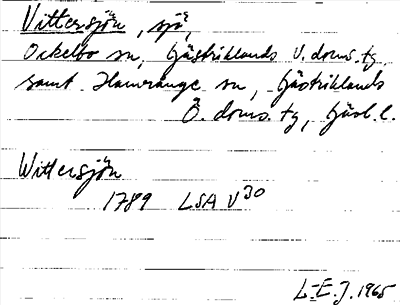 Vittersjön, sjö,
Ockelbo sn, Gästriklands V. doms. tg,
samt Hamrånge sn, Gästriklands
Ö. doms. tg, Gävl. l.
Wittersjön
1789 LSA V 30
L-E. J. 1965